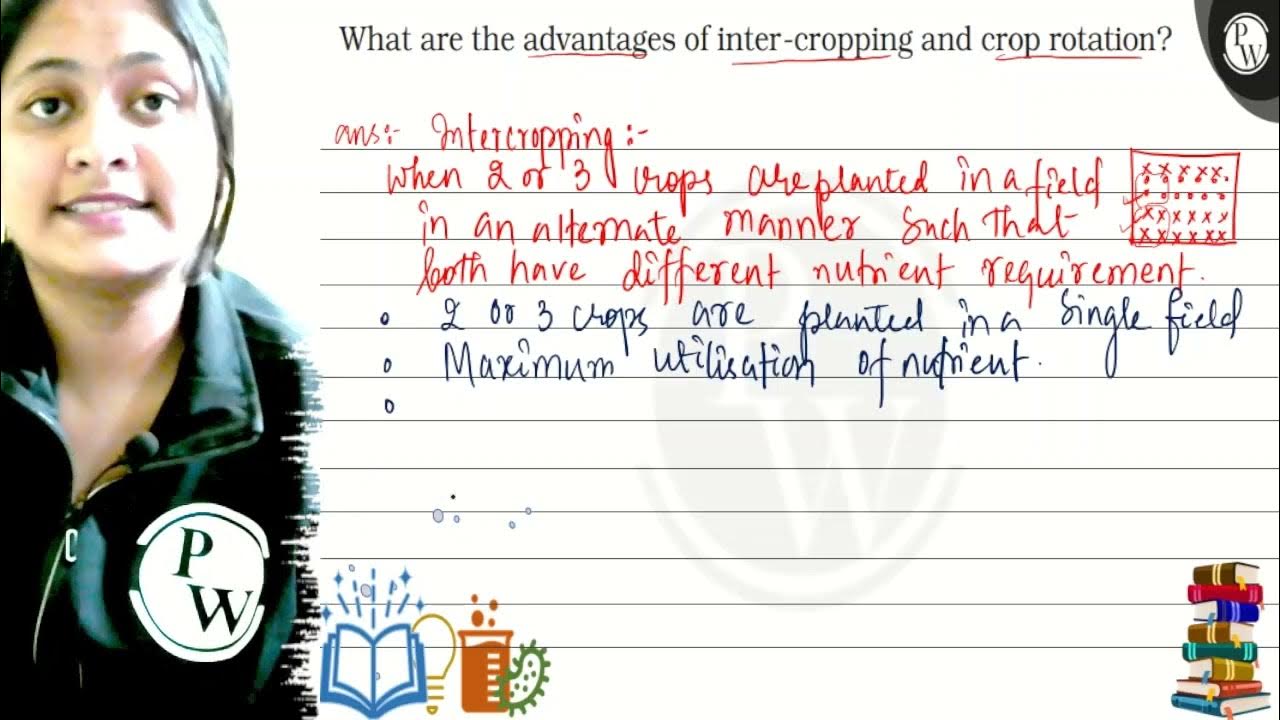 What are the advantages of inter-cropping and crop rotation?
P
W
ans:- Intercropping:-
When 2 or 3 crops are planted in a field
in an alternate manner such that
both have different nutrient requirement.
• 2 or 3 crops are planted in a single field
• Maximum utilisation of nutrient.
P
W